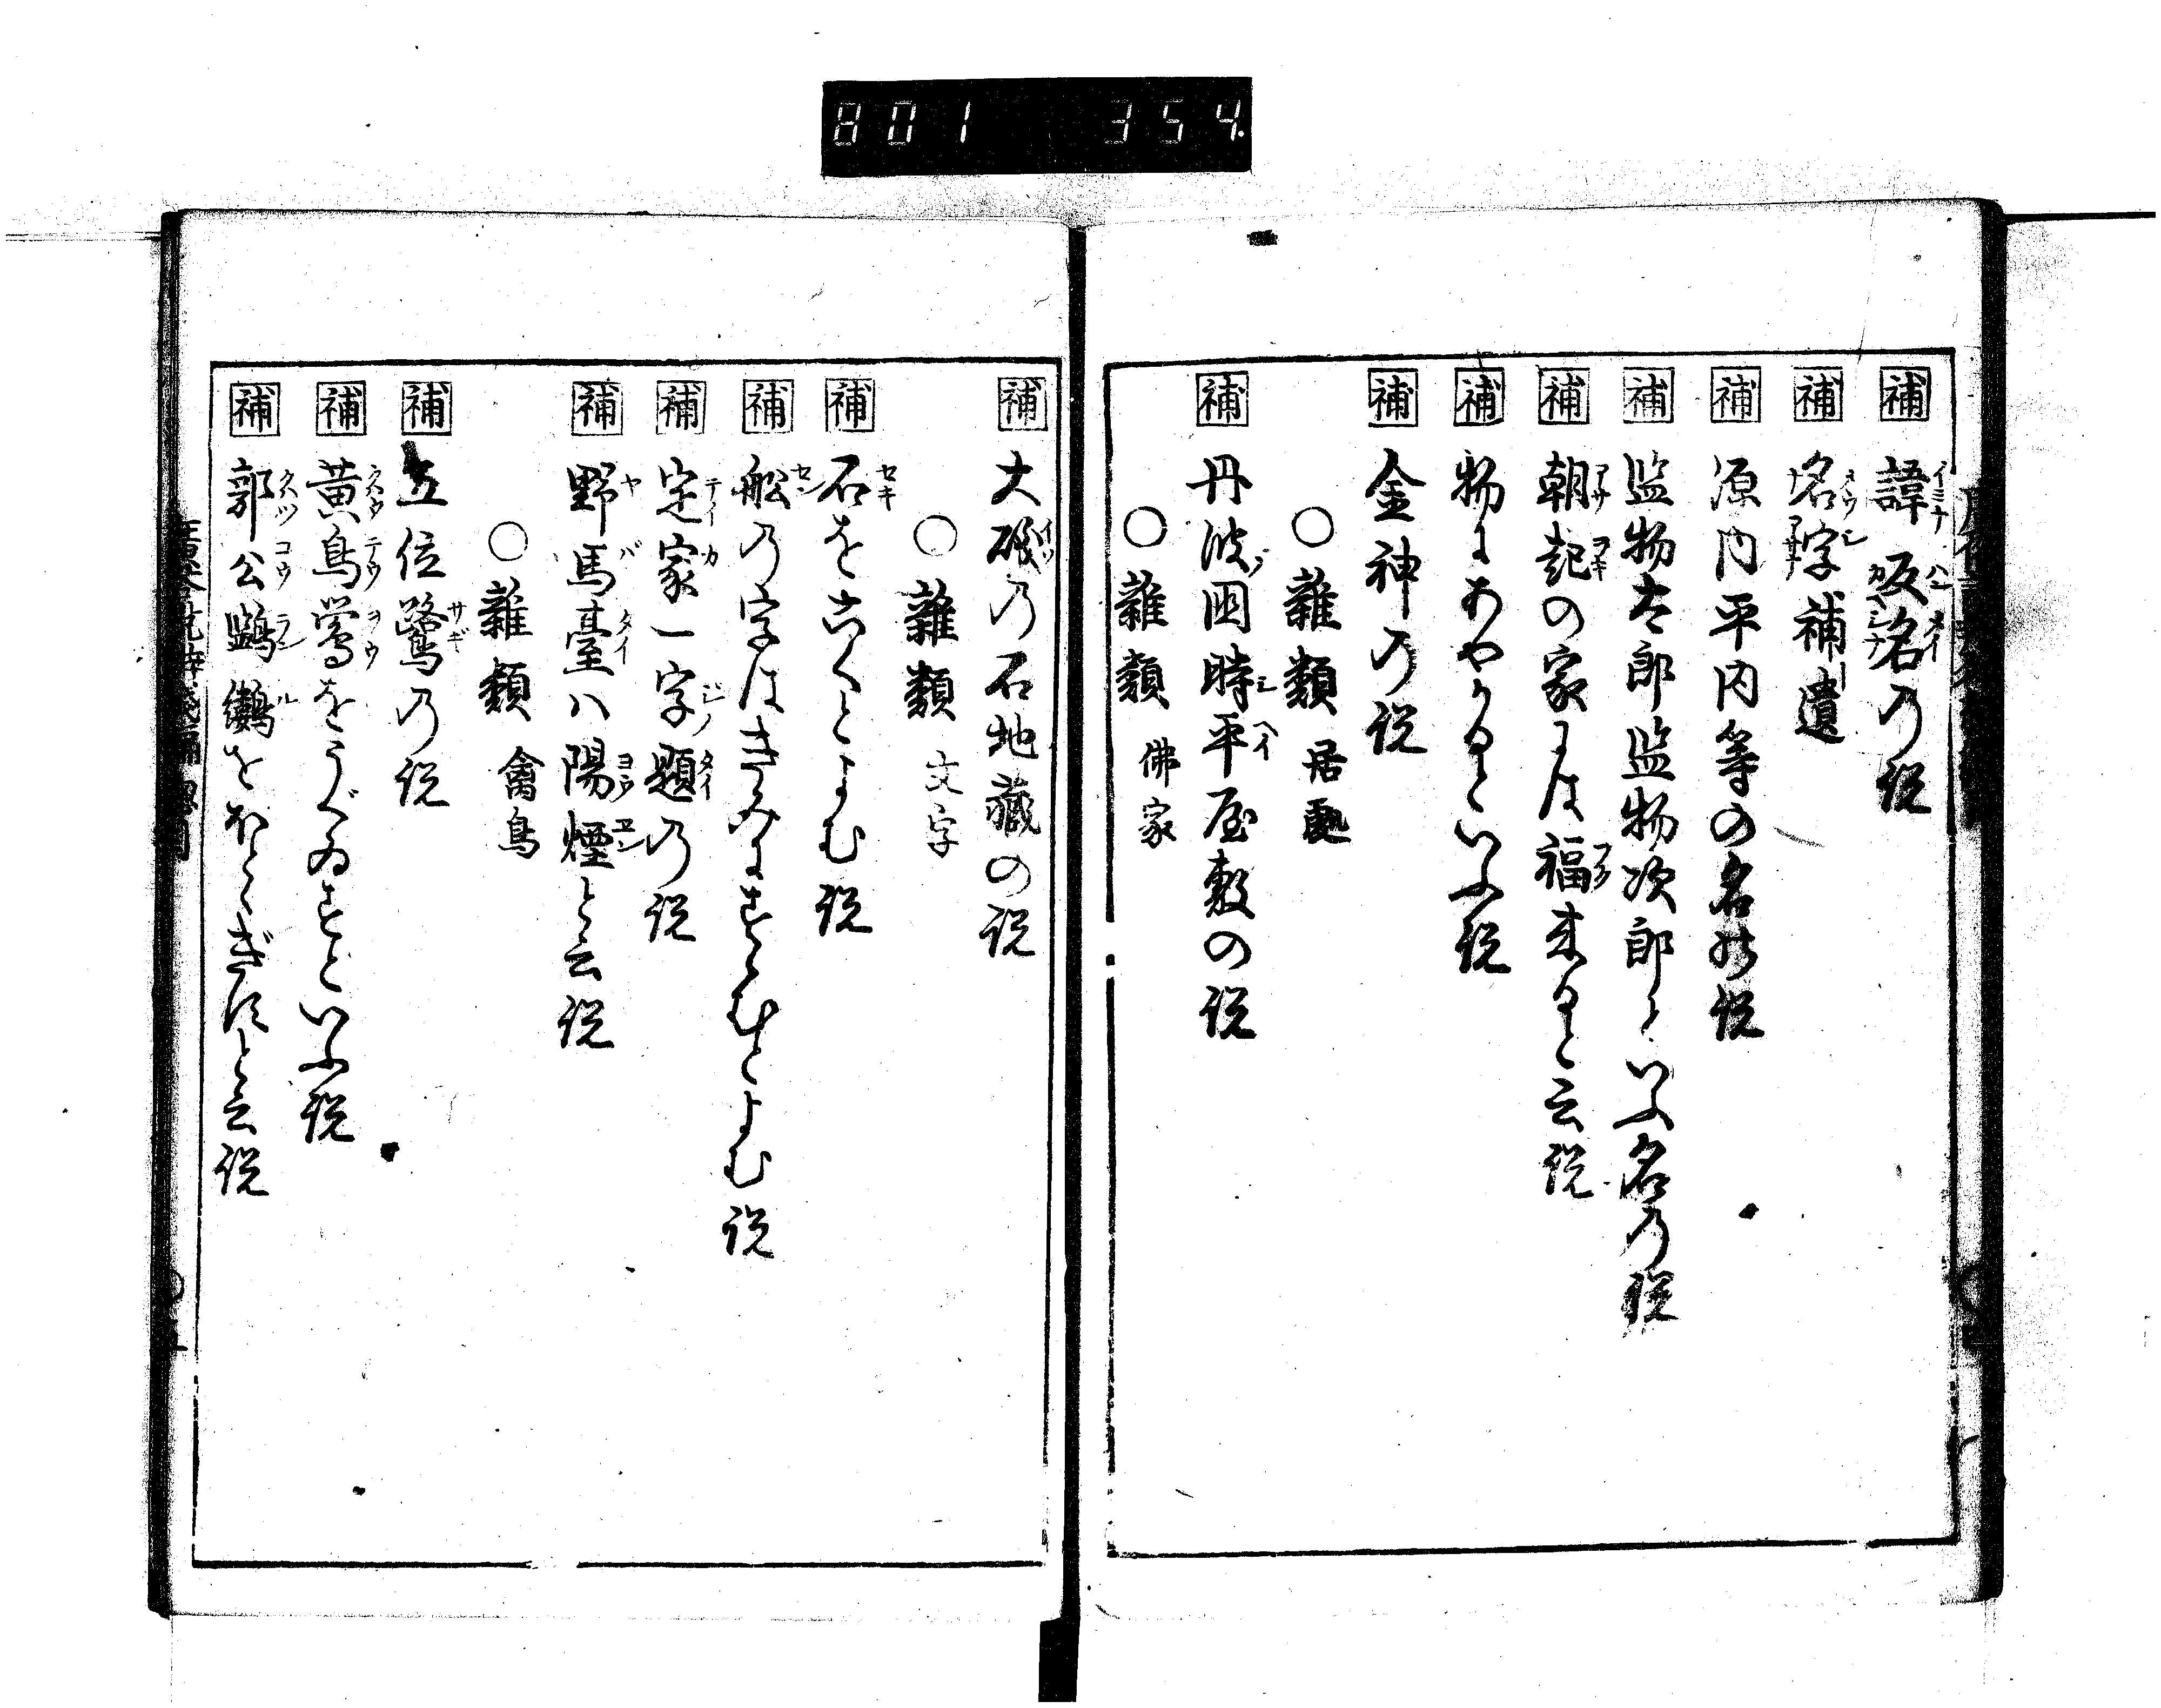 801 354
補 諱反名の説
補 名字補遺
補 源内平内等の名の説
補 監物太郎監物次郎といふ名の説
補 朝起の家には福来ると云説
補 物にあやかるといふ説
補 金神の説
○雜類 居處
補 丹波国時平屋敷の説
○雜類 佛家
補 大磯の石地藏の説
○雜類 文字
補 石をこくとよむ説
補 船の字はきみにすゝむとよむ説
補 定家一字題の説
補 野馬臺ハ陽煙と云説
○雜類 禽鳥
補 五位鷺の説
補 黄鳥鶯をうぐゐすといふ説
補 郭公鷝鷜をほとゝぎすと云説